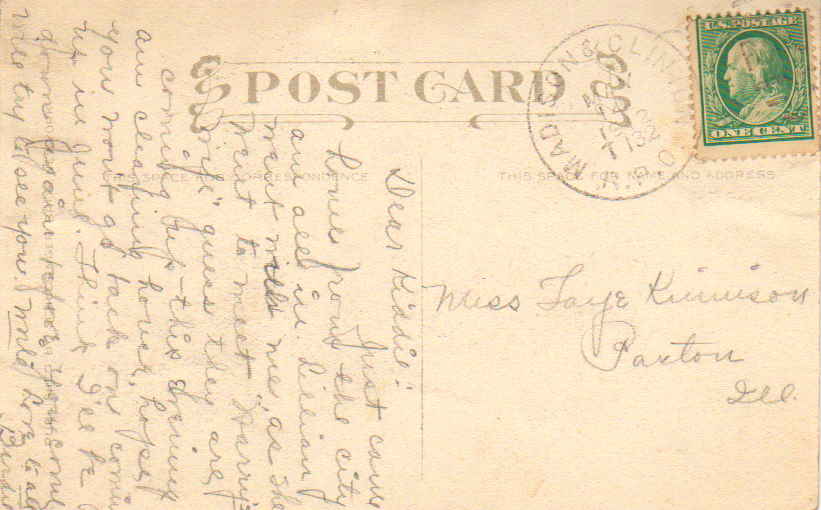 U.S. POSTAGE
ONE CENT
MADISON & CLINTON
POST CARD
THIS SPACE FOR CORRESPONDENCE
THIS SPACE FOR NAME AND ADDRESS
Miss Faye Kinnison
Paxton
Ill.
Dear Kiddie:
Just came
home from the city
and all in. Lillian
went with me, as she
went to meet "Harry"
guess they are
coming up this evening
am cleaning house, hope
you wont go back on
us in June. Think I'll be
down again before you
will try to see you. Love to all